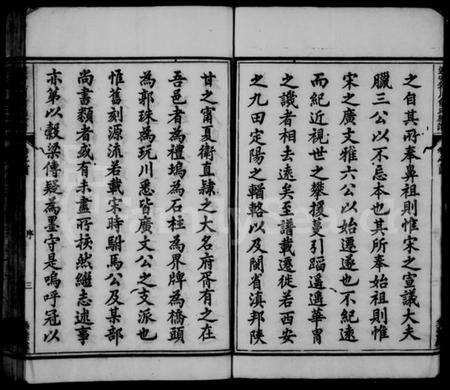 之自其所奉鼻祖則惟宋之宣議大夫
臘三公以不忘本也其所奉始祖則惟
宋之廣文雅六公以始遷遂也不紀遠
而紀近視世之攀援蔓引蹈遥遥華胄
之譏者相去遠矣至譜載遷徙若西安
之九田定陽之輶輅以及閩省滇邦陝
甘之甯夏衛直隸之大名府胥有之在
吾邑者為禮塢為石柱為界牌為橋頭
為郭珠為玩川悉皆廣文公之支派也
惟舊刻源流若載宋時駙馬公及某部
尚書類者或有未盡所挨然繼志述事
亦第以穀梁傳疑為墨守是嗚呼冠以
序
三